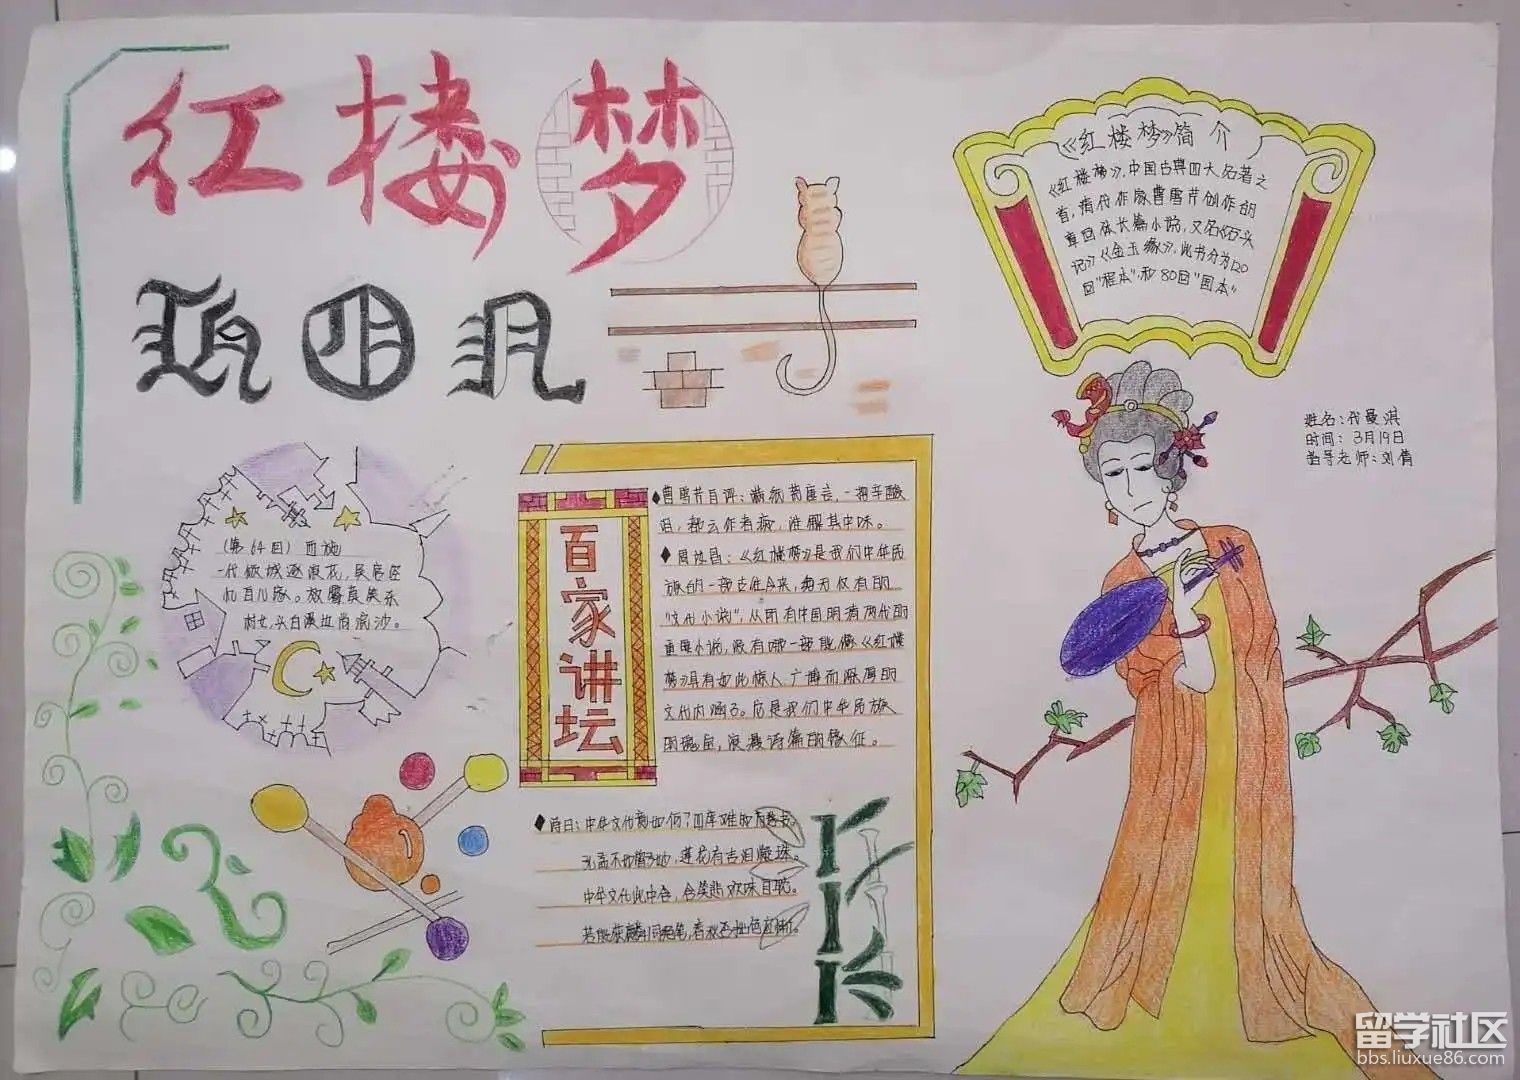 红楼梦
《红楼梦》简介
《红楼梦》，中国古典四大名著之
首，清代作家曹雪芹创作的
章回体长篇小说，又名《石头
记》《金玉缘》，此书分为120
回"程本"和80回"脂本"
姓名：代曼淇
时间：3月19日
指导老师：刘倩
(第64回) 西施
一代倾城逐浪花，吴宫空
忆自儿家。效颦莫笑东
村女，头白溪边尚浣沙。
百家讲坛
曹雪芹自评：满纸荒唐言，一把辛酸
泪，都云作者痴，谁解其中味。
周汝昌：《红楼梦》是我们中华民
族的一部古往今来，绝无仅有的
"文化小说"，从所有中国明清两代的
重要小说，没有哪一部能像《红楼
梦》具有如此惊人、广博而深厚的
文化内涵了。它是我们中华民族
的瑰宝，
诗曰：中华文化竟如何？四库难知
中华文化此中含，含笑
留学社区
bbs.liuxue86.com